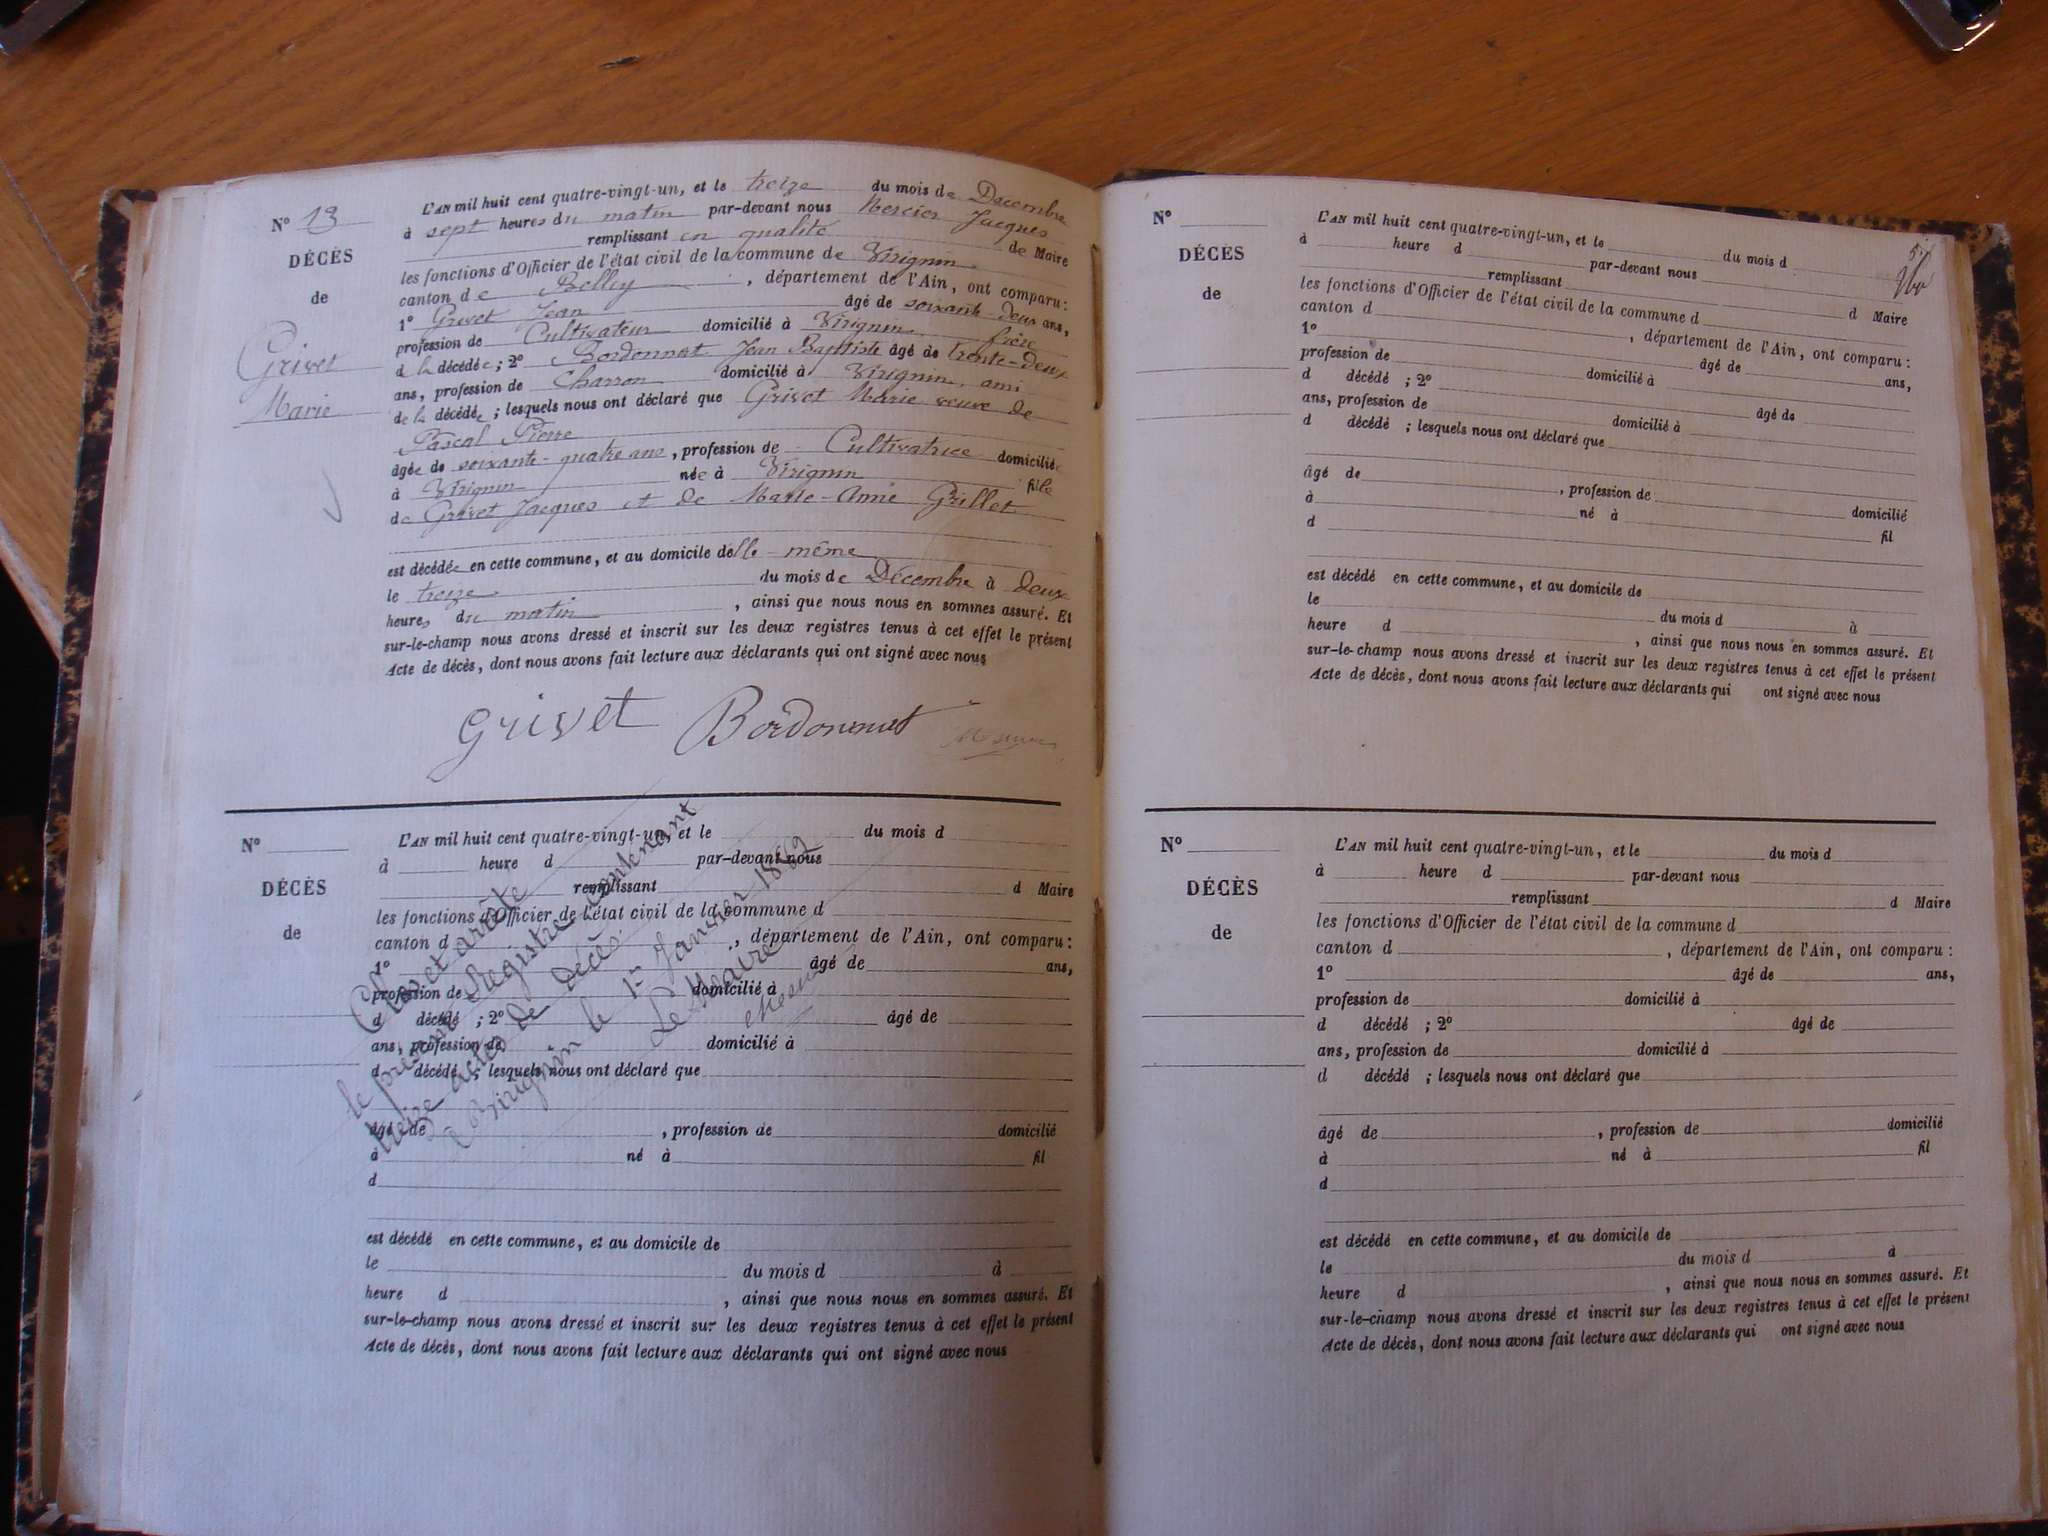 N° 13
DÉCÈS
de
Grivet
Marie
L'AN mil huit cent quatre-vingt-un, et le treize du mois de Décembre
à sept heures du matin par-devant nous Mercier Jacques
remplissant en qualité de Maire
les fonctions d'Officier de l'état civil de la commune de Virignin
canton de Belley, département de l'Ain, ont comparu :
1° Grivet Jean âgé de soixante-deux ans,
profession de Cultivateur domicilié à Virignin frère
d la décédée ; 2° Bordonnat Jean Baptiste âgé de trente-deux
ans, profession de Charron domicilié à Virignin, ami
de la décédée ; lesquels nous ont déclaré que Grivet Marie veuve de
Pascal Pierre
âgée de soixante-quatre ans, profession de Cultivatrice domiciliée
à Virignin née à Virignin fille
de Grivet Jacques et de Marie-Anne Grillet
est décédée en cette commune, et au domicile delle-même
le treize du mois de Décembre à deux
heures du matin, ainsi que nous nous en sommes assuré. Et
sur-le-champ nous avons dressé et inscrit sur les deux registres tenus à cet effet le présent
Acte de décès, dont nous avons fait lecture aux déclarants qui ont signé avec nous
Grivet Bordonnat
N°
DÉCÈS
de
L'AN mil huit cent quatre-vingt-un, et le du mois d
à heure d par-devant nous
remplissant d Maire
les fonctions d'Officier de l'état civil de la commune d
canton d , département de l'Ain, ont comparu :
1° âgé de ans,
profession de domicilié à
d décédé ; 2° âgé de
ans, profession de domicilié à
d décédé ; lesquels nous ont déclaré que
âgé de , profession de domicilié
à né à fil
d
est décédé en cette commune, et au domicile de
le du mois d à
heure d , ainsi que nous nous en sommes assuré. Et
sur-le-champ nous avons dressé et inscrit sur les deux registres tenus à cet effet le présent
Acte de décès, dont nous avons fait lecture aux déclarants qui ont signé avec nous
Clos et arrêté
le présent Registre contenant
treize actes de décès.
à Virignin le 1er Janvier 1882
Le Maire
N°
DÉCÈS
de
L'AN mil huit cent quatre-vingt-un, et le du mois d
à heure d par-devant nous
remplissant d Maire
les fonctions d'Officier de l'état civil de la commune d
canton d , département de l'Ain, ont comparu :
1° âgé de ans,
profession de domicilié à
d décédé ; 2° âgé de
ans, profession de domicilié à
d décédé ; lesquels nous ont déclaré que
âgé de , profession de domicilié
à né à fil
d
est décédé en cette commune, et au domicile de
le du mois d à
heure d , ainsi que nous nous en sommes assuré. Et
sur-le-champ nous avons dressé et inscrit sur les deux registres tenus à cet effet le présent
Acte de décès, dont nous avons fait lecture aux déclarants qui ont signé avec nous
N°
DÉCÈS
de
L'AN mil huit cent quatre-vingt-un, et le du mois d
à heure d par-devant nous
remplissant d Maire
les fonctions d'Officier de l'état civil de la commune d
canton d , département de l'Ain, ont comparu :
1° âgé de ans,
profession de domicilié à
d décédé ; 2° âgé de
ans, profession de domicilié à
d décédé ; lesquels nous ont déclaré que
âgé de , profession de domicilié
à né à fil
d
est décédé en cette commune, et au domicile de
le du mois d à
heure d , ainsi que nous nous en sommes assuré. Et
sur-le-champ nous avons dressé et inscrit sur les deux registres tenus à cet effet le présent
Acte de décès, dont nous avons fait lecture aux déclarants qui ont signé avec nous